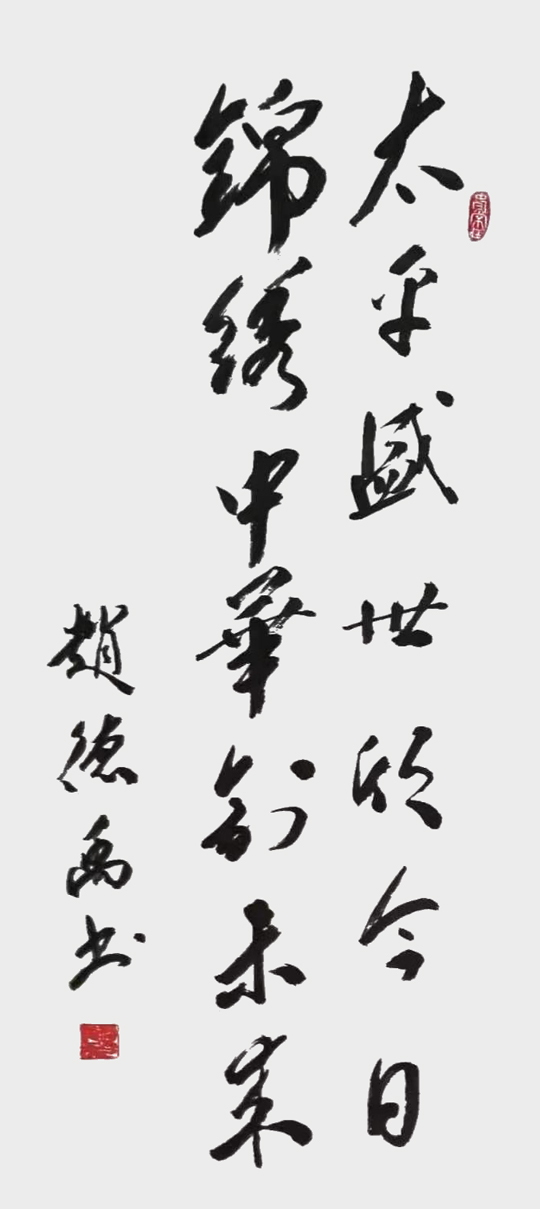 太平盛世欣今日
錦绣中華創未来
趙德禹书